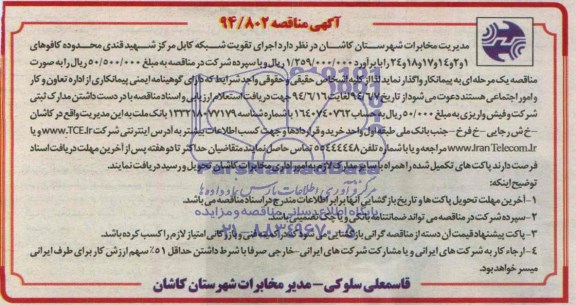 آگهی مناقصه ۹۴/۸۰۲
مدیریت مخابرات شهرستان کاشان در نظر دارد اجرای تقویت شبکه کابل مرکز شهید قندی محدوده کافوهای
۱و۲و۱۴و۱۷و۱۸و۲۴ را با برآورد ۱/۲۵۹/۰۰۰/۰۰۰ ریال و با سپرده شرکت در مناقصه به مبلغ ۵۰/۵۰۰/۰۰۰ ریال را به صورت
مناقصه یک مرحله‌ای به پیمانکار واگذار نماید لذا از کلیه اشخاص حقیقی و حقوقی واجد شرایط که دارای گواهینامه ایمنی پیمانکاری از اداره تعاون و کار
و امور اجتماعی هستند دعوت می‌شود از تاریخ ۹۴/۶/۷ لغایت ۹۴/۶/۱۶ جهت دریافت استعلام ارزیابی و اسناد مناقصه با در دست داشتن مدارک ثبتی
شرکت و فیش واریزی به مبلغ ۵۰/۰۰۰ ریال به حساب ۱۶۴۰۷۴۰۷۶۲ با شماره شناسه ۱۳۳۲۱۸۰۷۷۱۷۹ بانک ملت به این مدیریت واقع در کاشان
- خ ش رجایی - خ فرخ - جنب بانک ملی طبقه اول واحد خرید و قراردادها و جهت کسب اطلاعات بیشتر به آدرس اینترنتی شرکت www.TCE.Ir و یا
www.Iran Telecom.Ir مراجعه و یا با شماره تلفن ۵۵۴۴۴۴۴۸ تماس حاصل نمایند متقاضیان حداکثر تا دو هفته پس از آخرین مهلت دریافت اسناد
فرصت دارند پاکت های تکمیل شده را همراه با سایر مدارک لازم به امور اداری مخابرات کاشان تحویل و رسید دریافت نمایند.
توضیح اینکه:
۱- آخرین مهلت تحویل پاکت‌ها و تاریخ بازگشایی آنها برابر اطلاعات مندرج در اسناد مناقصه می‌باشد.
۲- سپرده شرکت در مناقصه می تواند ضمانتنامه بانکی و یا چک تضمینی باشد.
۳- پاکت پیشنهاد قیمت آن دسته از مناقصه گرانی بازگشایی می شود که در ارزیابی فنی و بازرگانی امتیاز لازم را کسب کرده باشد.
۴- ارجاء کار به شرکت های ایرانی و یا مشارکت شرکت های ایرانی- خارجی صرفا با شرط داشتن حداقل ۵۱٪ سهم ارزش کار برای طرف ایرانی
میسر خواهد بود.
قاسمعلی سلوکی - مدیر مخابرات شهرستان کاشان
ParsNamadData
مرکز فرآوری اطلاعات پارس نماد داده ها
پایگاه اطلاع رسانی مناقصه و مزایده
۰۲۱-۸۸۳۴۹۶۷۰-۵